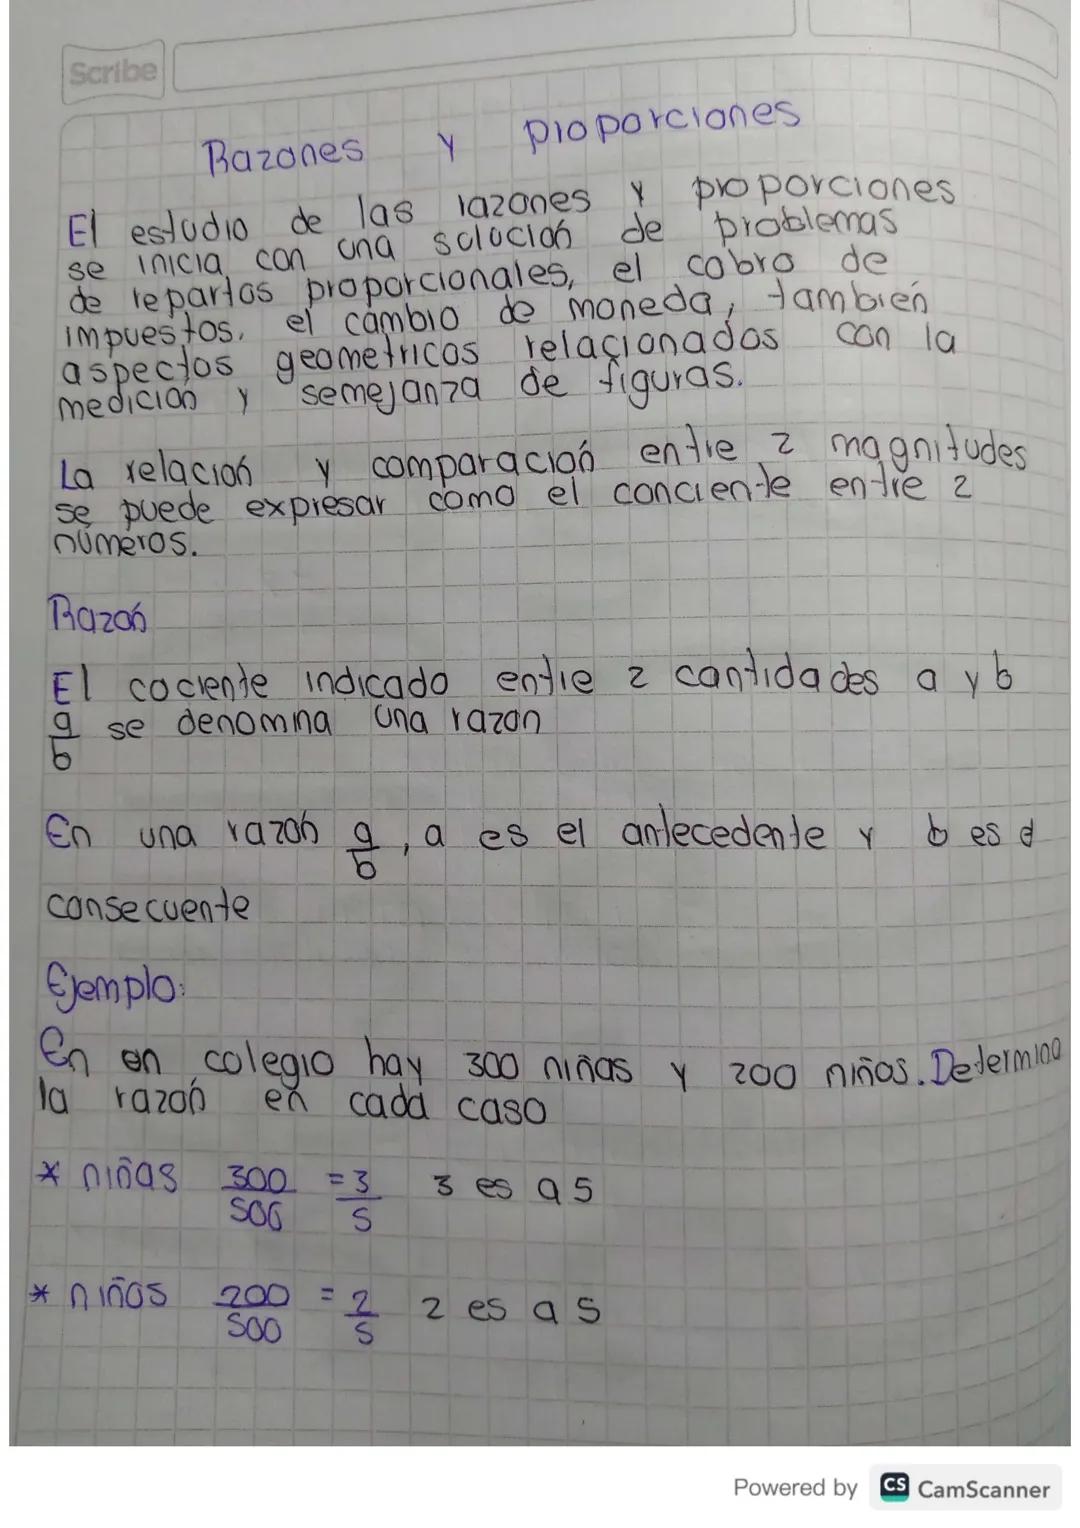 Scribe
Razones y proporciones
El estudio de las razones y proporciones
se inicia con una solución de problemas
de repartos proporcionales, el cobro de
impuestos, el cambio de moneda, también
aspectos geometricos relacionados con la
medición y semejanza de figuras.
La relación y comparación entre 2 magnitudes
se puede expresar como el conciente entre 2
números.
Razón
El cociente indicado entre 2 cantidades a y b
a/b se denomina una razon
En una razón a/b, a es el antecedente y b es el
consecuente
Ejemplo:
En un colegio hay 300 niñas y 200 niños. Determina
la razón en cada caso
* niñas 300/500 = 3/5 3 es a 5
* niños 200/500 = 2/5 2 es a 5
Powered by CS CamScanner